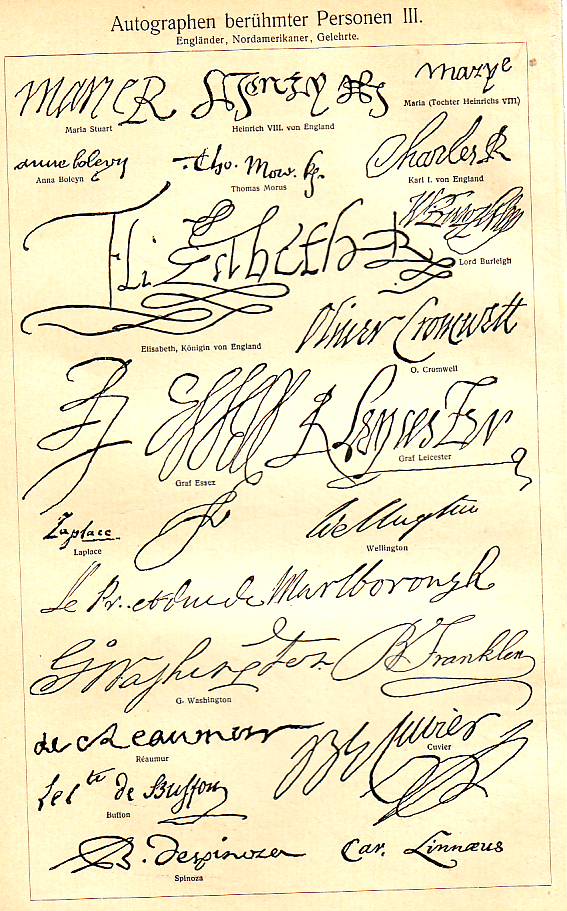 Autographen berühmter Personen III.
Engländer, Nordamerikaner, Gelehrte.
Marie R
Henry R
Marye
Maria Stuart
Heinrich VIII. von England
Maria (Tochter Heinrichs VIII)
anne boleyn
Tho. More kg.
Charles R
Anna Boleyn
Thomas Morus
Karl I. von England
Elizabeth R
Lord Burleigh
Elisabeth, Königin von England
Oliver Cromwell
O. Cromwell
Essex
R Leycester
Graf Essex
Graf Leicester
Laplace
Wellington
Laplace
Wellington
Le Pr. et duc de Marlborough
GWashington
B Franklin
G. Washington
de Reaumur
Cuvier
Réaumur
Cuvier
Le Cte de Buffon
Buffon
B. despinoza
Car. Linnæus
Spinoza